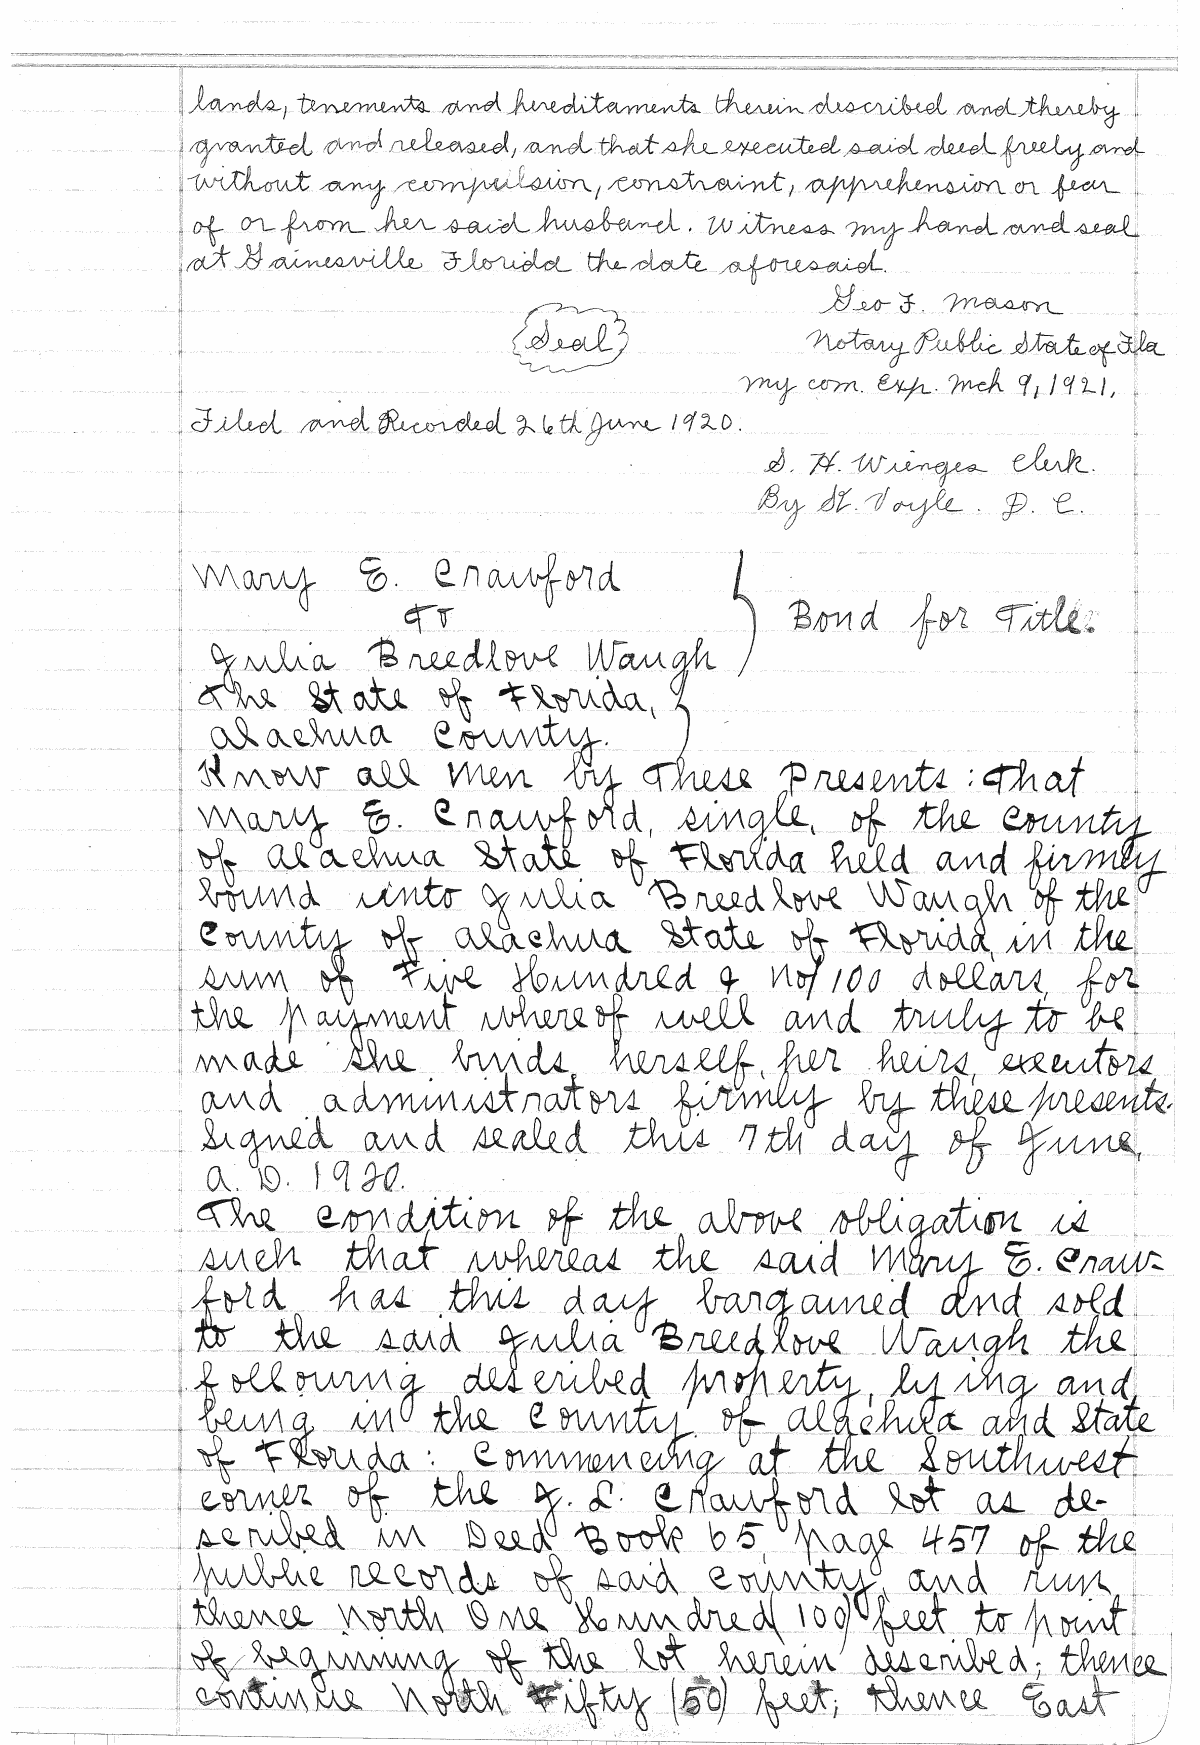 lands, tenements and hereditaments therein described and thereby
granted and released, and that she executed said deed freely and
without any compulsion, constraint, apprehension or fear
of or from her said husband. Witness my hand and seal
at Gainesville Florida the date aforesaid.
Geo F. Mason
Seal
Notary Public State of Fla
my com. Exp. Mch 9, 1921.
Filed and Recorded 26th June 1920.
S. H. Wienges Clerk.
By St. Voyle. D. C.
Mary E. Crawford
to
Bond for Title.
Julia Breedlove Waugh
The State of Florida,
Alachua County.
Know all Men by These Presents: That
Mary E. Crawford, single, of the County
of Alachua State of Florida held and firmly
bound unto Julia Breedlove Waugh of the
County of Alachua State of Florida, in the
sum of Five Hundred & No/100 dollars, for
the payment whereof well and truly to be
made she binds herself, her heirs, executors
and administrators firmly by these presents.
Signed and sealed this 7th day of June,
A. D. 1920.
The condition of the above obligation is
such that whereas the said Mary E. Craw=
ford has this day bargained and sold
to the said Julia Breedlove Waugh the
following described property, lying and
being in the County of Alachua and State
of Florida: Commencing at the Southwest
corner of the J. L. Crawford lot as de-
scribed in Deed Book 65, page 457 of the
public records of said county, and run
thence North One Hundred (100) feet to point
of beginning of the lot herein described; thence
continue North Fifty (50) feet; thence East